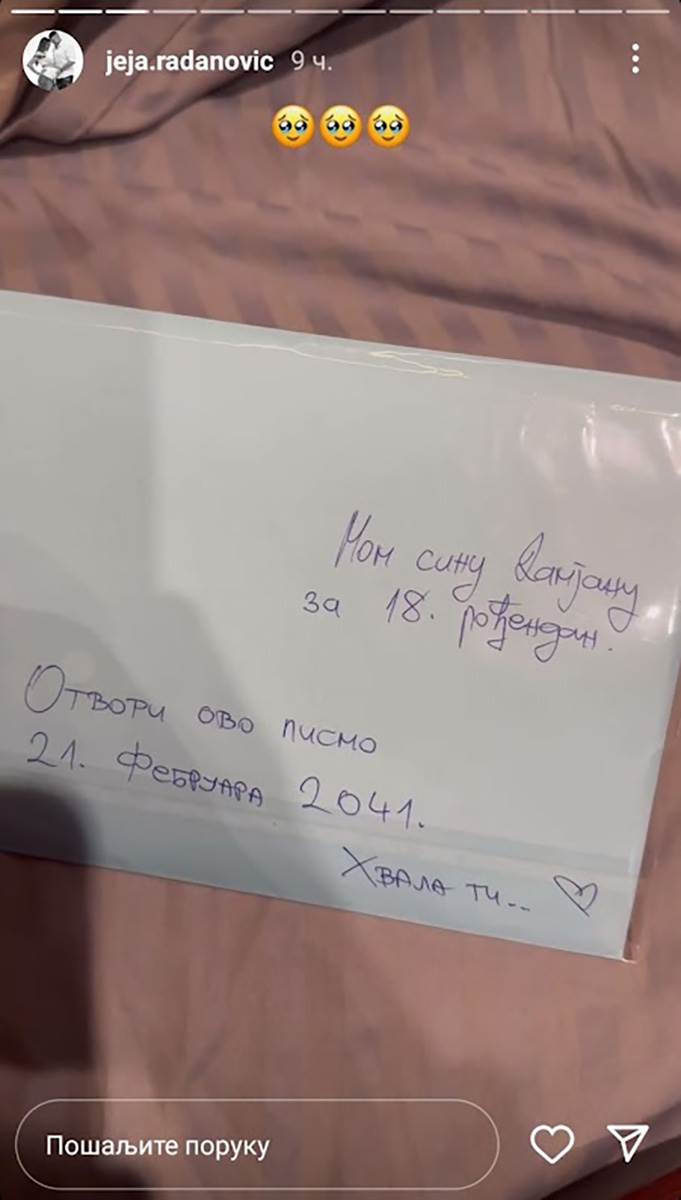 jeja.radanovic 9 ч.
Мом сину Дамјану
за 18. рођендан.
Отвори ово писмо
21. Фебруара 2041.
Хвала ти...
Пошаљите поруку